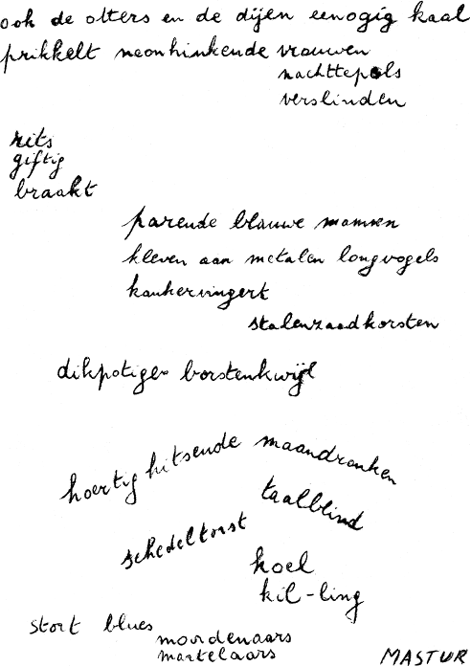 ook de olters en de dijen eenogig kaal
prikkelt neonhinkende vrouwen
nachttepels
verslinden
rits
giftig
braakt
parende blauwe mannen
kleven aan metalen longvogels
kankervingert
stalenzaadkorsten
dikpotige borstenkwijl
hoertig hitsende maandronken
taalblind
schedeltorst
koel
kil-ling
stort blues
moordenaars
martelaars
MASTUR